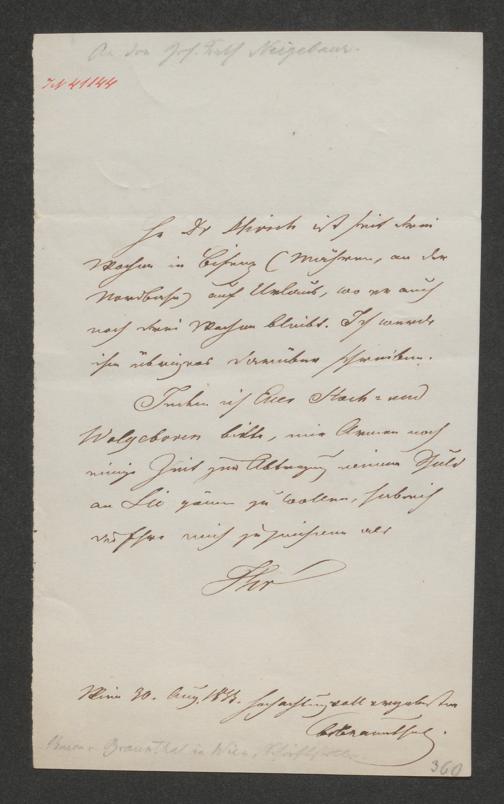 An den Jos. Neigebaur.
IN 41144
H. Dr Hirsch ist seit drei
Wochen in Bisenz (Mähren, an der
Nordbahn) auf Urlaub, wo er auch
noch drei Wochen bleibt. Ich werde
ihm übrigens darüber schreiben.
Indem ich Euer Hoch- und
Wolgeboren bitte, mir Armen noch
einige Zeit zur Abtragung meiner Schuld
an Sie gönnen zu wollen, habe ich
die Ehre mich zu zeichnen als
Ihr
Wien 30. Aug. hochachtungsvoll ergebenster
Braunthal.
Braun v. Braunthal in Wien, Schriftsteller
360